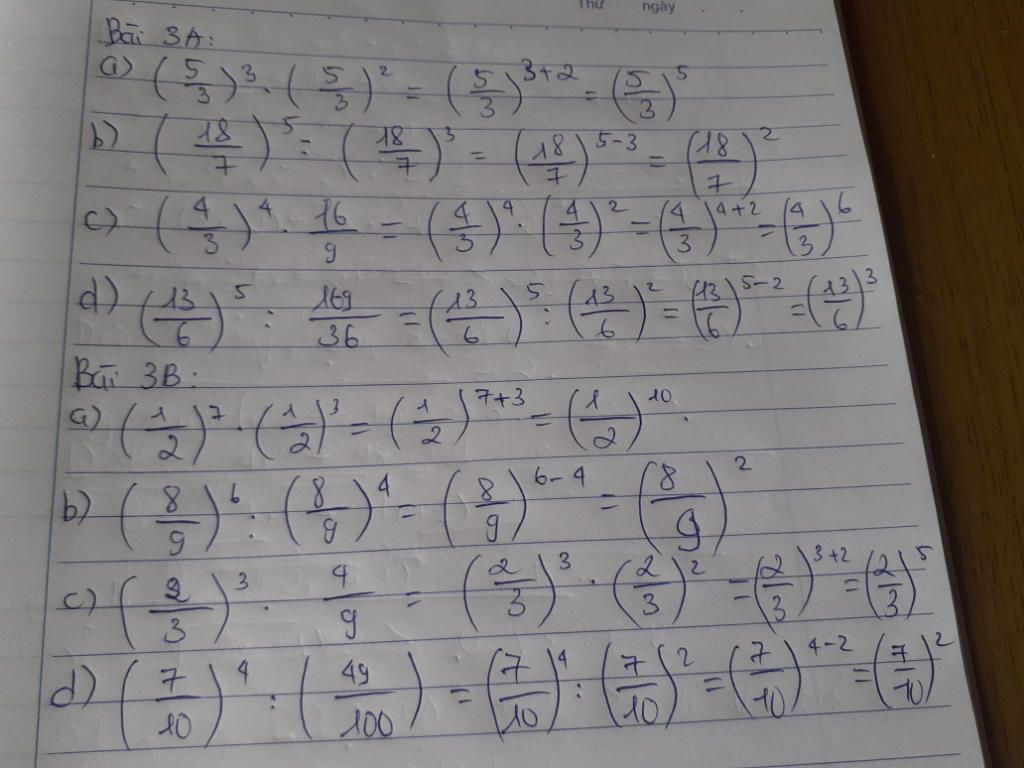 Thứ ngày . .
Bài 3A:
a) (5/3)³ · (5/3)² = (5/3)³⁺² = (5/3)⁵
b) (18/7)⁵ : (18/7)³ = (18/7)⁵⁻³ = (18/7)²
c) (4/3)⁴ · 16/9 = (4/3)⁴ · (4/3)² = (4/3)⁴⁺² = (4/3)⁶
d) (13/6)⁵ : 169/36 = (13/6)⁵ : (13/6)² = (13/6)⁵⁻² = (13/6)³
Bài 3B:
a) (1/2)⁷ · (1/2)³ = (1/2)⁷⁺³ = (1/2)¹⁰.
b) (8/9)⁶ : (8/9)⁴ = (8/9)⁶⁻⁴ = (8/9)²
c) (2/3)³ · 4/9 = (2/3)³ · (2/3)² = (2/3)³⁺² = (2/3)⁵
d) (7/10)⁴ : (49/100) = (7/10)⁴ : (7/10)² = (7/10)⁴⁻² = (7/10)²